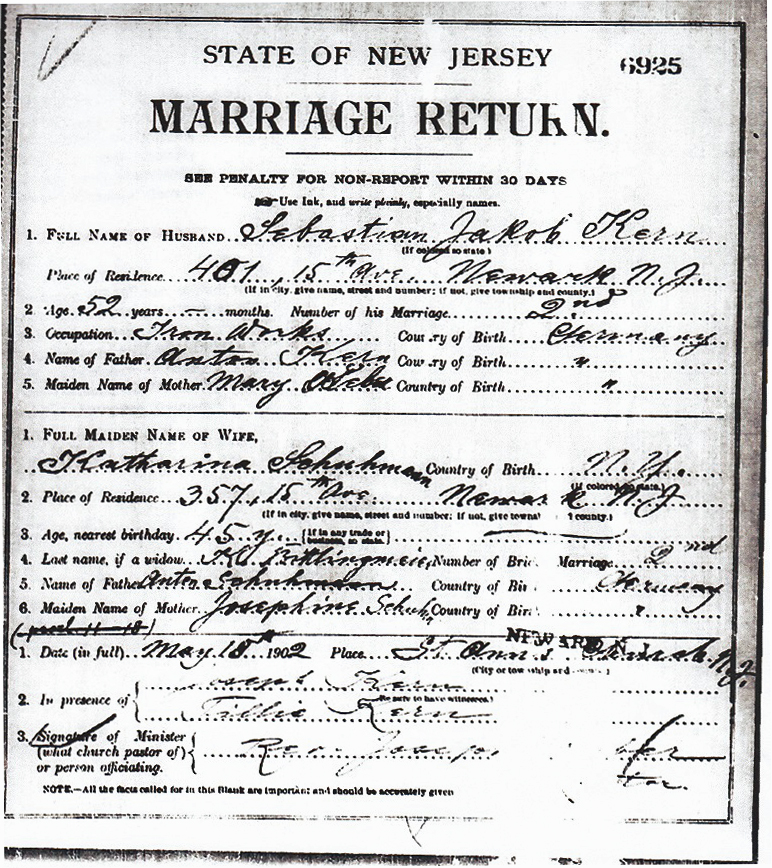 STATE OF NEW JERSEY 6925
MARRIAGE RETURN.
SEE PENALTY FOR NON-REPORT WITHIN 30 DAYS
Use Ink, and write plainly, especially names.
1. FULL NAME OF HUSBAND Sebastian Jakob Kern
(If colored so state.)
Place of Residence 401, 15th Ave. Newark N.J.
(If in city, give name, street and number; if not, give township and county.)
2 Age. 52 years — months. Number of his Marriage 2nd
3. Occupation Iron Works Country of Birth Germany
4. Name of Father Anton Kern Country of Birth "
5. Maiden Name of Mother. Mary Country of Birth "
1. FULL MAIDEN NAME OF WIFE,
Katharina Schuhmann Country of Birth N.Y.
(If colored so state.)
2. Place of Residence 357, 15th Ave Newark N.J
(If in city, give name, street and number; if not, give town county.)
3. Age, nearest birthday. 45 y. (If in any trade or business, so state.)
4. Last name, if a widow. K. Bittlingmeier Number of Bri Marriage 2nd
5. Name of Father Anton Schuhmann Country of Bir Germany
6. Maiden Name of Mother. Josephine Country of Bir "
NEWARK N. J.
1. Date (in full) May 18th 1902 Place St. Ann's Church N.J.
(City or township and county)
2. In presence of Joseph Kern
(Be sure to have witnesses.)
Tillie Kern
3. Signature of Minister
(what church pastor of) Rev. Joseph
or person officiating.
NOTE.—All the facts called for in this Blank are important and should be accurately given